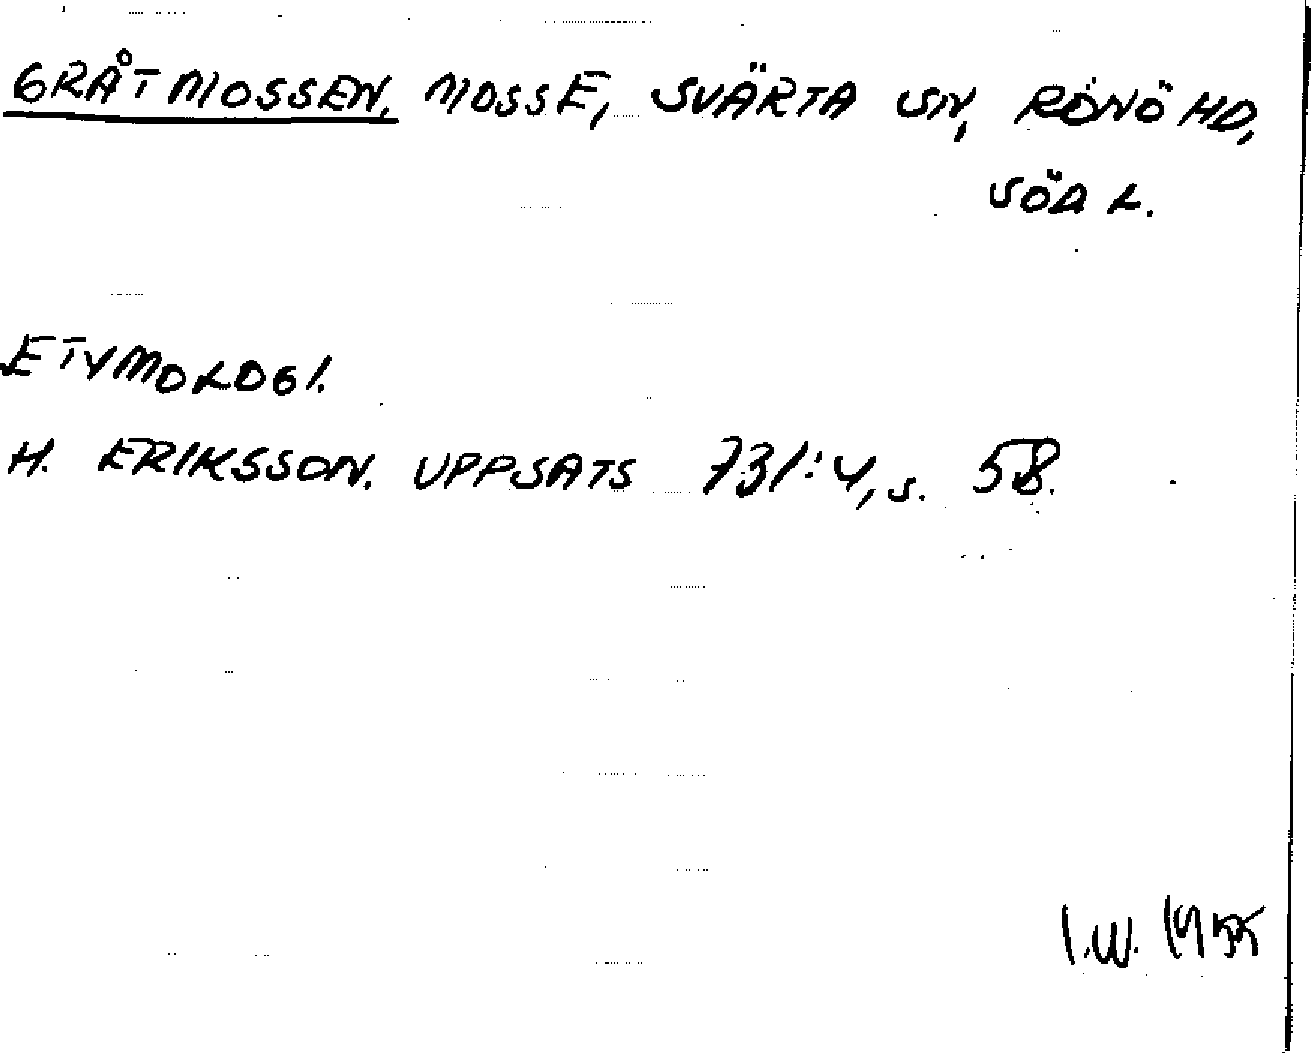 GRÅTMOSSEN, MOSSE, SVÄRTA SN, RÖNÖ HD,
SÖD L.
ETYMOLOGI.
H. ERIKSSON. UPPSATS 731:4, s. 58.
I.W. 1955